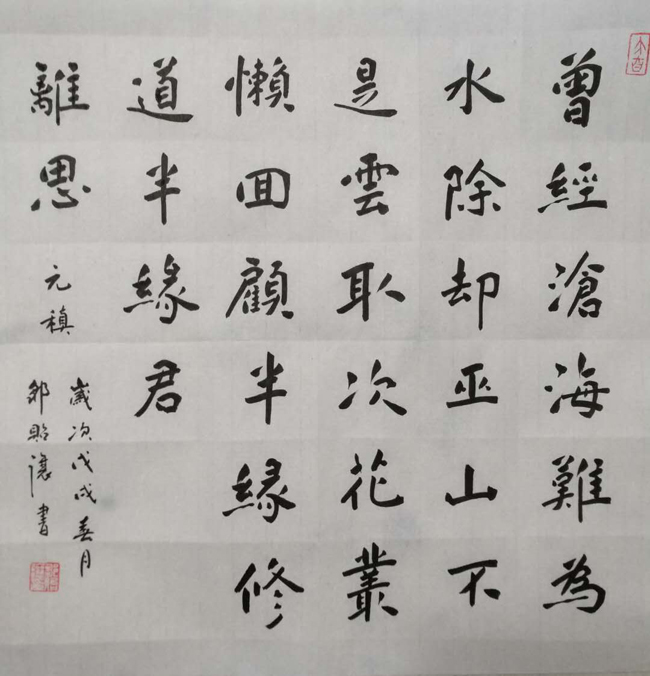 曾經滄海難為
水除却巫山不
是雲取次花叢
懶回顧半緣修
道半緣君
離思
元稹
歲次戊戌春月
邹昭讓書